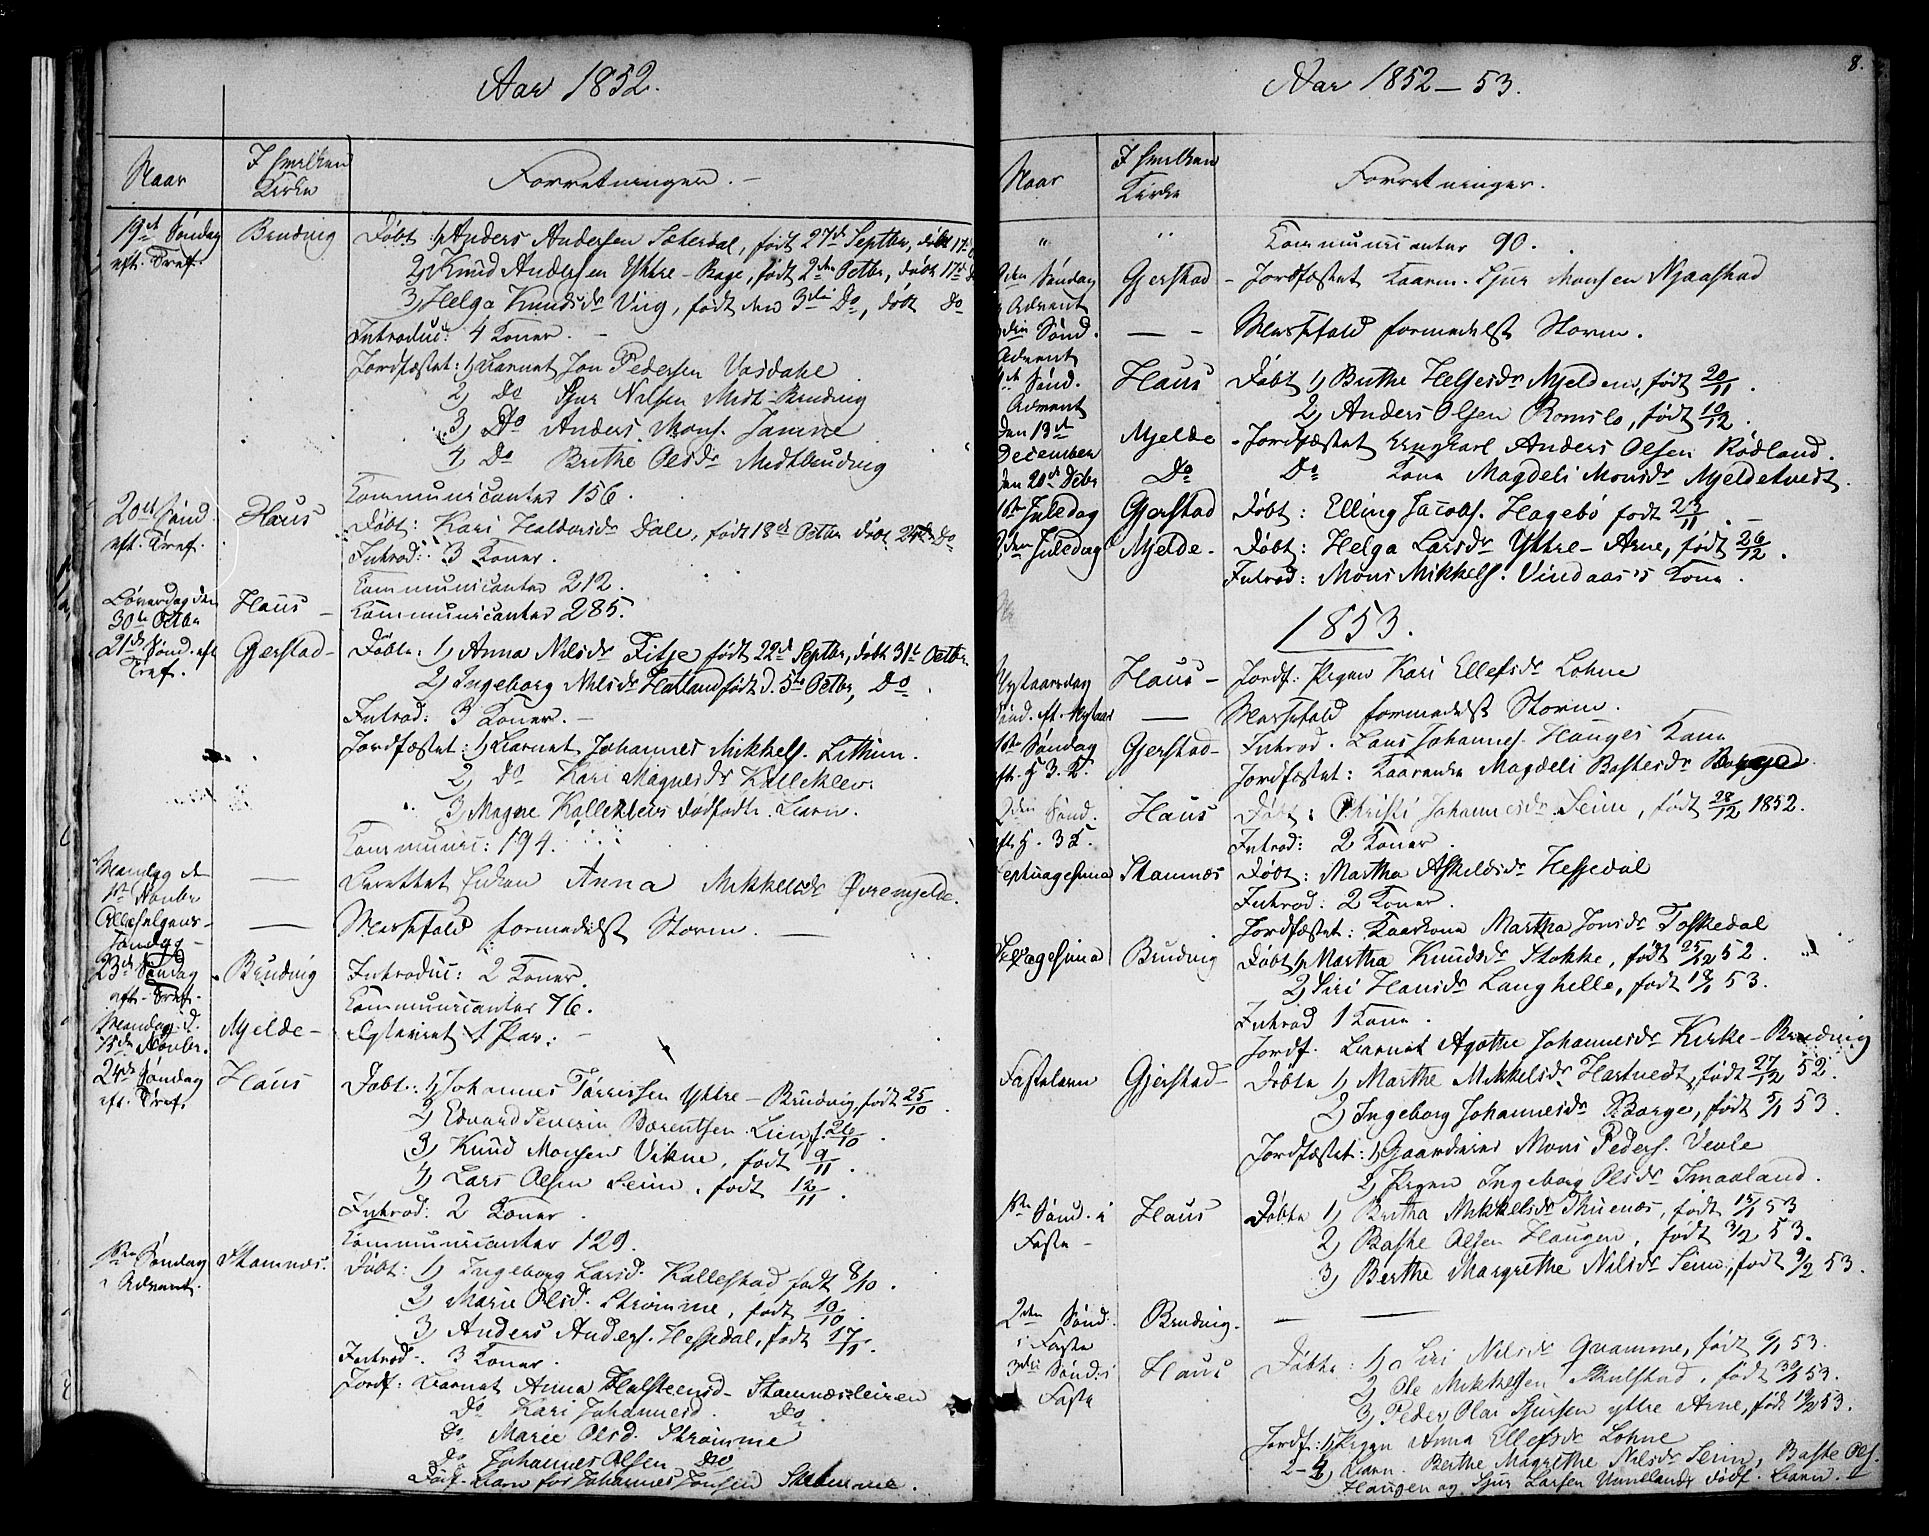 Aar 1852.
Naar
I hvilken Kirke
Forretninger. -
19de Søndag eft. Tref. Brudvig Døbt: 1) Anders Andersen Sæterdal, født 27de Septbr, døbt 17de
2) Knud Andersen Yttre-Bage, født 2den Octbr, døbt 17de
3) Helga Knudsdr Viig, født den 3die Do, døbt Do
Introduc: 4 Koner. -
Jordfæstet: 1) Barnet Jon Pedersen Vasdahl
2) Do Sjur Nilsen Midt-Brudvig
3) Do Anders Mons. Jamne
4) Do Brithe Olsdr Midtbrudvig
Communicanter 156.
20de Sønd. eft. Tref. Haus Døbt: Kari Haldorsdr Dale, født 18de Octbr døbt 24de Do
Introd: 3 Koner.
Communicanter 212.
Løverdag den 30te Octbr Haus - Communicanter 285.
21de Sønd. eft Tref. Gjerstad - Døbte: 1) Anna Nilsdr Fitje født 22de Septbr, døbt 31te Octbr.
2) Ingeborg Nilsdr Hatland født d. 5te Octbr, Do.
Introd: 3 Koner. -
Jordfæstet: 1) Barnet Johannes Mikkels. Lethun.
2) Do Kari Magnesdr Kalleklev.
3) Magne Kalleklevs dødfødte Barn.
Communic: 194.
Mandag d. 1ste Novbr — Berettet Enken Anna Mikkelsdr Øvremjelde.
Allehelgens-Søndag - — Messefald formedelst Storm. —
23de Søndag eft. Tref. Brudvig Introduc: 2 Koner.
Communicanter 76.
Mandag d. 15de Novbr. Mjelde - Egteviet: 1 Par. -
24de Søndag eft. Tref. Haus Døbt: 1) Johannes Tørressen Yttre-Brudvig, født 25/10.
2) Edvard Severin Børentsen Lien, f. 26/10.
3) Knud Monsen Vikne, født 9/11.
4) Lars Olsen Seim, født 12/11.
Introd: 2 Koner.
Communicanter 129.
1ste Søndag i Advent. Stamnæs. Døbt: 1) Ingeborg Larsd. Kallestad født 8/10.
2) Marie Olsd. Strømme, født 10/10.
3) Anders Anders. Hessedal, født 17/11.
Introd. 3 Koner.
Jordf: Barnet Anna Halsteensd - Stamnæsleiren
Do Kari Johannesd. Do.
Do Marie Olsd. Strømme
Do Johannes Olsen Do
Dødf. Barn for Johannes Jonsen Strømme.
Aar 1852-53.
8.
Naar
I hvilken Kirke
Forretninger.
" " Communicanter 90.
2den Søndag i Advent Gjerstad - Jordfæstet Kaarm. Sjur Monsen Njaastad
3die Sønd. Advent — - Messefald formedelst Storm.
4de Sønd. Advent Haus Døbt 1) Brithe Helgesdr Mjelden, født 20/11.
2) Anders Olsen Romslo, født 10/12.
Den 13de December Mjelde - Jordfæstet Ungkarl Anders Olsen Rødland.
Den 20de Decbr Do Do Kone Magdeli Monsdr Mjeldetvedt.
1ste Juledag Gjerstad Døbt: Elling Jacobs. Hagebø født 23/11. -
2den Juledag Mjelde - Døbt: Helga Larsdr Yttre-Arne, født 26/12.
Introd: Mons Mikkels. Vindaas's Kone.
1853.
Nytaarsdag Haus - Jordf: Pigen Kari Ellefsdr Lohne
Sønd. eft. Nytaar — Messefald formedelst Storm.
1ste Søndag eft. H. 3. K. Gjerstad - Introd. Lars Johannes. Hauges Kone
Jordfæstet: Kaarenke Magdeli Bastesdr
2den Sønd. eft. H. 3 K. Haus Døbt: Christi Johannesdr Seim, født 28/12 1852.
Introd: 2 Koner.
Septuagesima Stamnæs Døbt: Martha Askeldsdr Hessedal
Introd: 2 Koner.
Jordfæstet: Kaarkone Martha Jonsdr Toskedal
Sexagesima Brudvig Døbt 1) Martha Knudsdr Stokke, født 25/12 52.
2) Siri Hansdr Langhelle, født 18/1 53.
Introd 1 Kone.
Jordf. Barnet Agathe Johannesdr Kirke-Brudvig
Fastelavn Gjerstad - Døbte 1) Marthe Mikkelsdr Hartvedt, født 27/12 52.
2) Ingeborg Johannesdr Borge, født 5/1 53.
Jordfæstet: 1) Gaardmand Mons Peders. Veole
2) Pigen Ingeborg Olsdr Smaaland.
1ste Sønd. i Faste - Haus Døbte 1) Brita Mikkelsdr Thuenæs, født 15/1 53
2) Baste Olsen Haugen, født 3/2 53.
3) Berthe Margrethe Nilsdr Seim, født 9/2 53.
2den Sønd. i Faste Brudvig. — —
3die Sønd. i Faste Haus Døbte: 1) Siri Nilsdr Gramme, født 6/1 53.
2) Ole Mikkelsen Skulstad, født 30/1 53.
3) Peder Olai Sjursen yttre Arne, født 19/2 53.
Jordf: 1) Pigen Anna Ellefsdr Lohne
2-4) Barn. Berthe Magrethe Nilsdr Seim, Baste Ols.
Haugen og Sjur Larsen dødf. Barn.